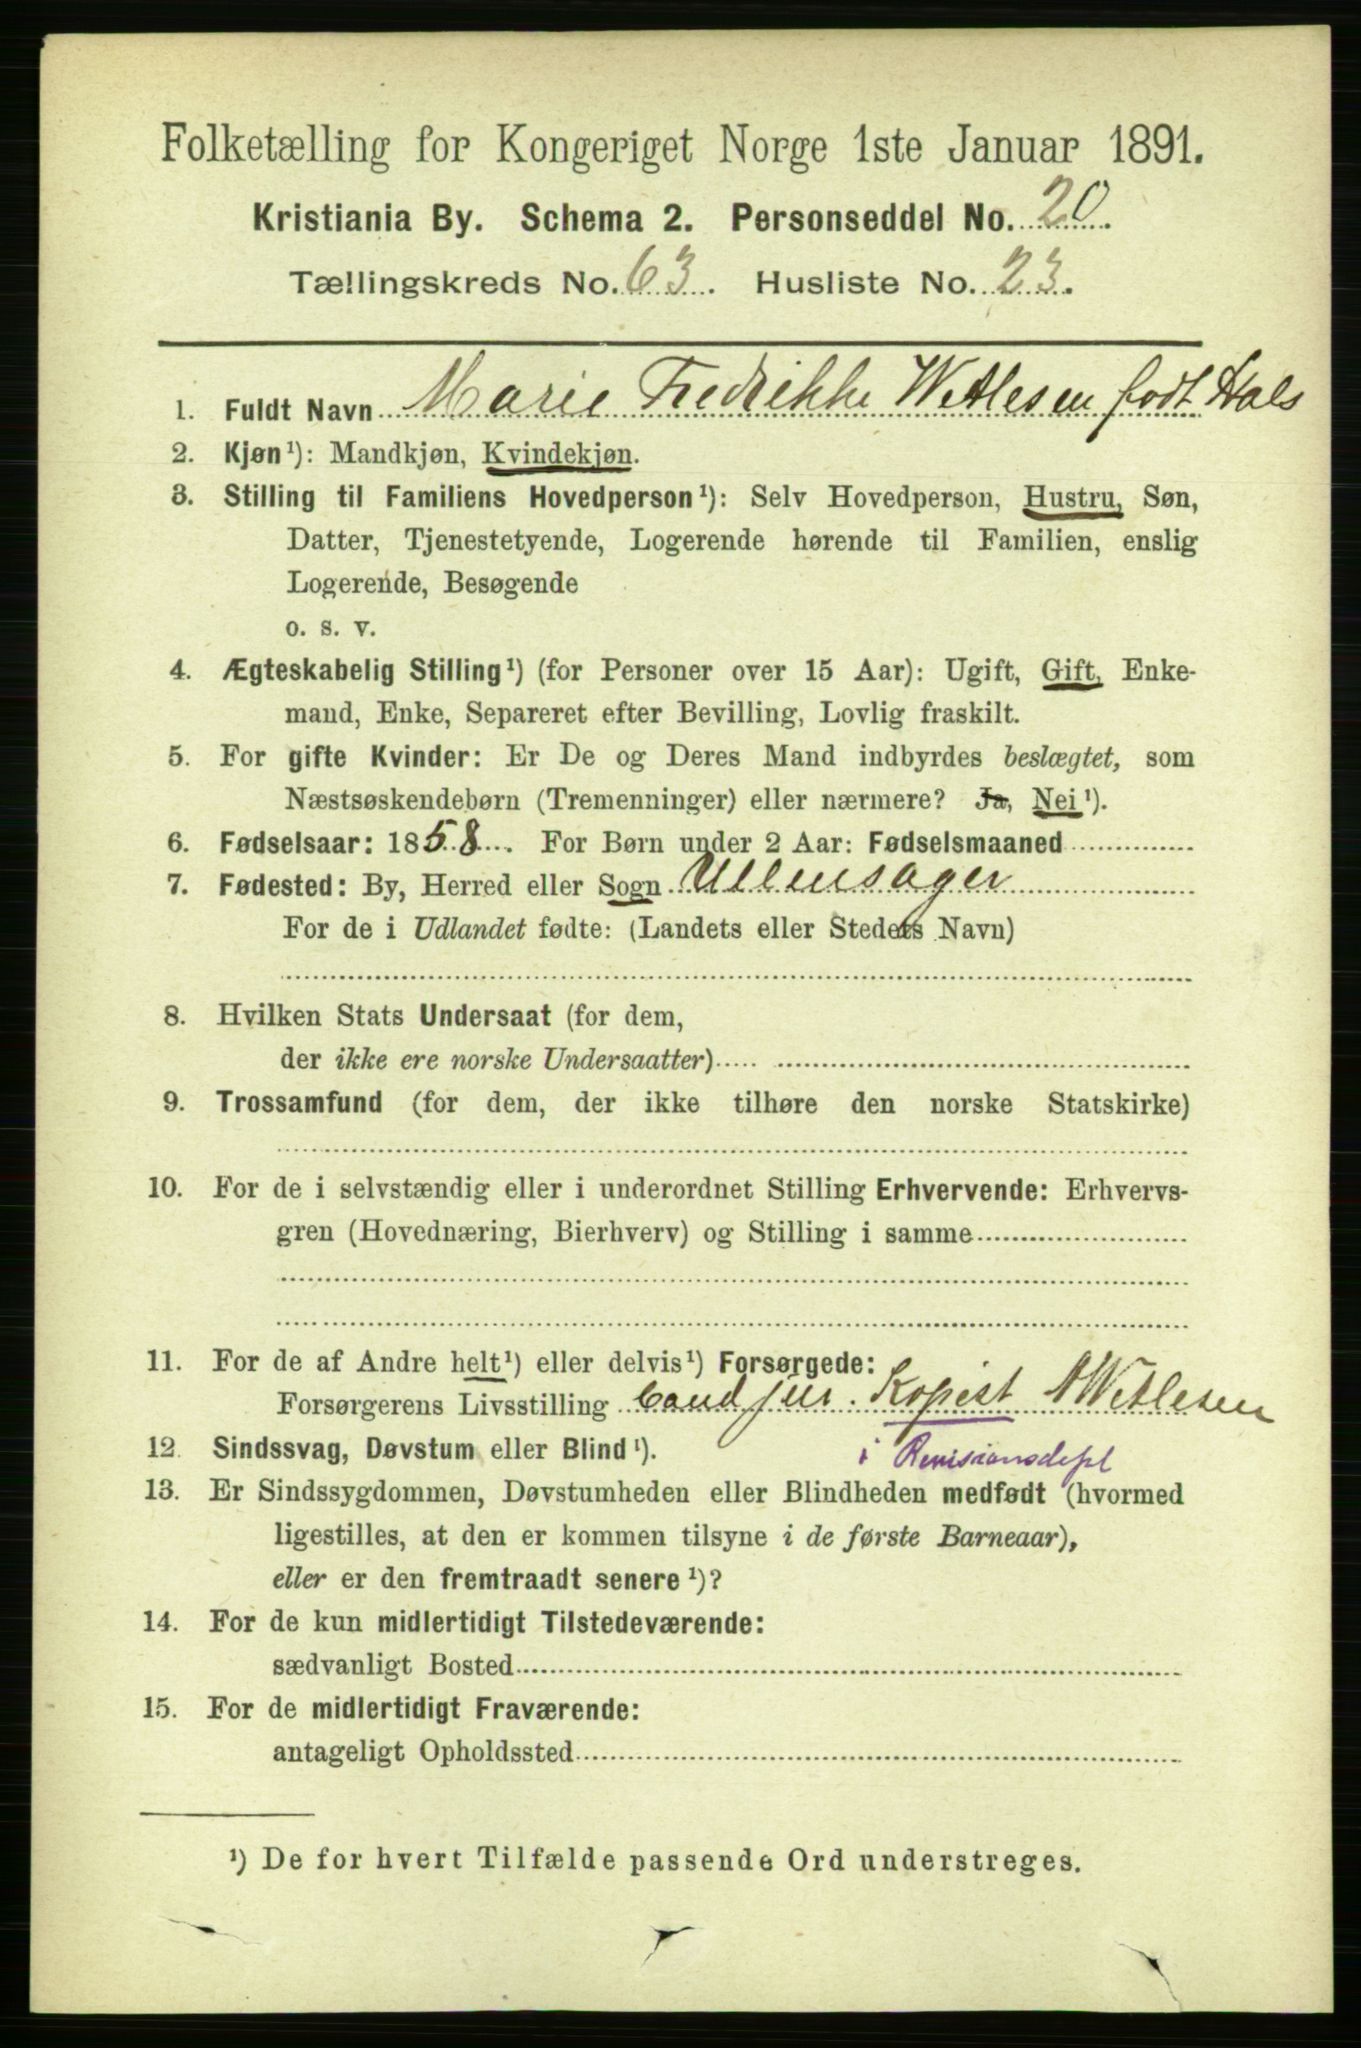 Folketælling for Kongeriget Norge 1ste Januar 1891.
Kristiania By. Schema 2. Personseddel No. 20.
Tællingskreds No. 63. Husliste No. 23.
1. Fuldt Navn Marie Fredrikke Wetlesen født Hals
2. Kjøn¹): Mandkjøn, Kvindekjøn.
3. Stilling til Familiens Hovedperson¹): Selv Hovedperson, Hustru, Søn,
Datter, Tjenestetyende, Logerende hørende til Familien, enslig
Logerende, Besøgende
o. s. v.
4. Ægteskabelig Stilling¹) (for Personer over 15 Aar): Ugift, Gift, Enke-
mand, Enke, Separeret efter Bevilling, Lovlig fraskilt.
5. For gifte Kvinder: Er De og Deres Mand indbyrdes beslægtet, som
Næstsøskendebørn (Tremenninger) eller nærmere? Ja, Nei¹).
6. Fødselsaar: 1858. For Børn under 2 Aar: Fødselsmaaned
7. Fødested: By, Herred eller Sogn Ullensager
For de i Udlandet fødte: (Landets eller Stedets Navn)
8. Hvilken Stats Undersaat (for dem,
der ikke ere norske Undersaatter)
9. Trossamfund (for dem, der ikke tilhøre den norske Statskirke)
10. For de i selvstændig eller i underordnet Stilling Erhvervende: Erhvervs-
gren (Hovednæring, Bierhverv) og Stilling i samme
11. For de af Andre helt¹) eller delvis¹) Forsørgede:
Forsørgerens Livsstilling Cand jur. Kopist A Wetlesen
i Revisionsdept
12. Sindssvag, Døvstum eller Blind¹).
13. Er Sindssygdommen, Døvstumheden eller Blindheden medfødt (hvormed
ligestilles, at den er kommen tilsyne i de første Barneaar),
eller er den fremtraadt senere¹)?
14. For de kun midlertidigt Tilstedeværende:
sædvanligt Bosted
15. For de midlertidigt Fraværende:
antageligt Opholdssted
¹) De for hvert Tilfælde passende Ord understreges.